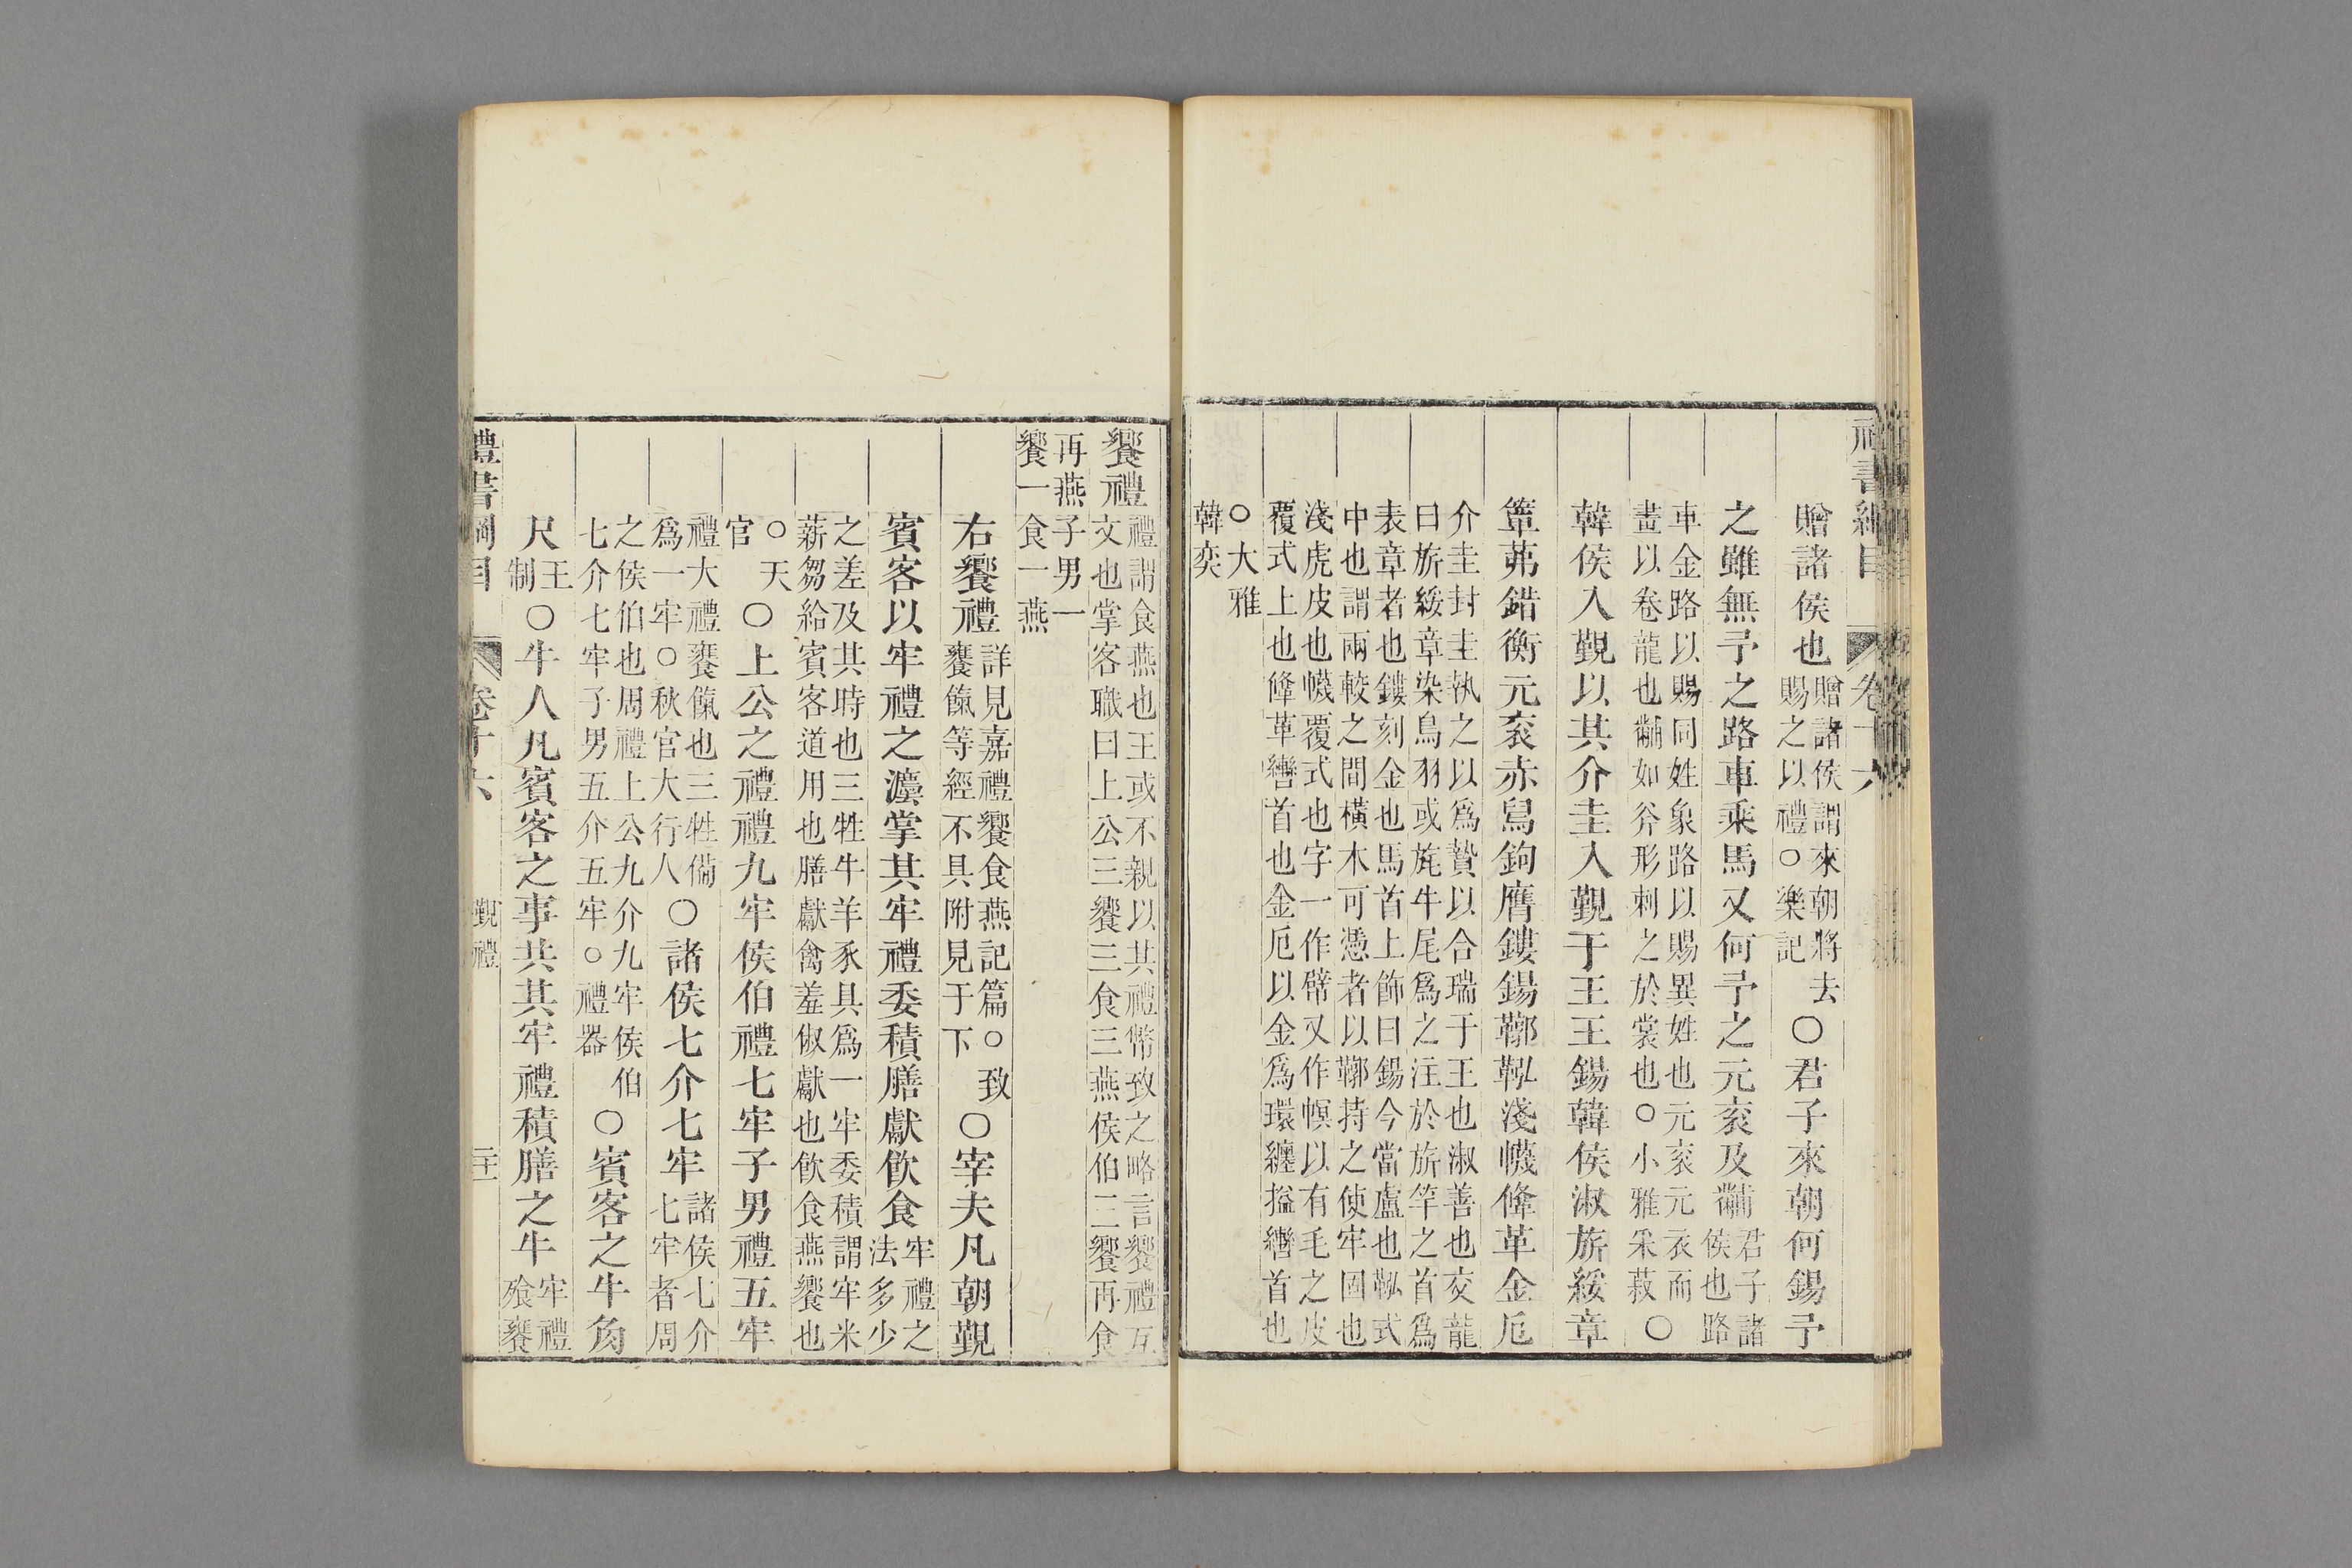 禮書綱目 卷十六
贈諸侯也贈諸侯謂來朝將去賜之以禮○樂記○君子來朝何錫予
之雖無予之路車乘馬又何予之元袞及黼君子諸侯也路
車金路以賜同姓象路以賜異姓也元袞元衣而畫以卷龍也黼如斧形刺之於裳也○小雅采菽○
韓侯入覲以其介圭入覲于王王錫韓侯淑旂綏章
簟茀錯衡元袞赤舄鉤膺鏤鍚鞹鞃淺幭鞗革金厄
介圭封圭執之以爲贄以合瑞于王也淑善也交龍
曰旂綏章染鳥羽或旄牛尾爲之注於旂竿之首爲
表章者也鏤刻金也馬首上飾曰鍚今當盧也鞃式
中也謂兩較之間橫木可憑者以鞹持之使牢固也
淺虎皮也幭覆式也字一作幦又作幎以有毛之皮
覆式上也鞗革轡首也金厄以金爲環纏搤轡首也
○大雅
韓奕
饗禮禮謂食燕也王或不親以其禮幣致之略言饗禮互
文也掌客職曰上公三饗三食三燕侯伯二饗再食
再燕子男一
饗一食一燕
右饗禮詳見嘉禮饗食燕記篇○致饔餼等經不具附見于下○宰夫凡朝覲
賓客以牢禮之灋掌其牢禮委積膳獻飲食牢禮之法多少
之差及其時也三牲牛羊豕具爲一牢委積謂牢米
薪芻給賓客道用也膳獻禽羞俶獻也飲食燕饗也
○天官○上公之禮禮九牢侯伯禮七牢子男禮五牢
禮大禮饔餼也三牲備爲一牢○秋官大行人○諸侯七介七牢諸侯七介七牢者周
之侯伯也周禮上公九介九牢侯伯七介七牢子男五介五牢○禮器○賓客之牛角
尺王制○牛人凡賓客之事共其牢禮積膳之牛牢禮飧饔
禮書綱目 卷十六 覲禮